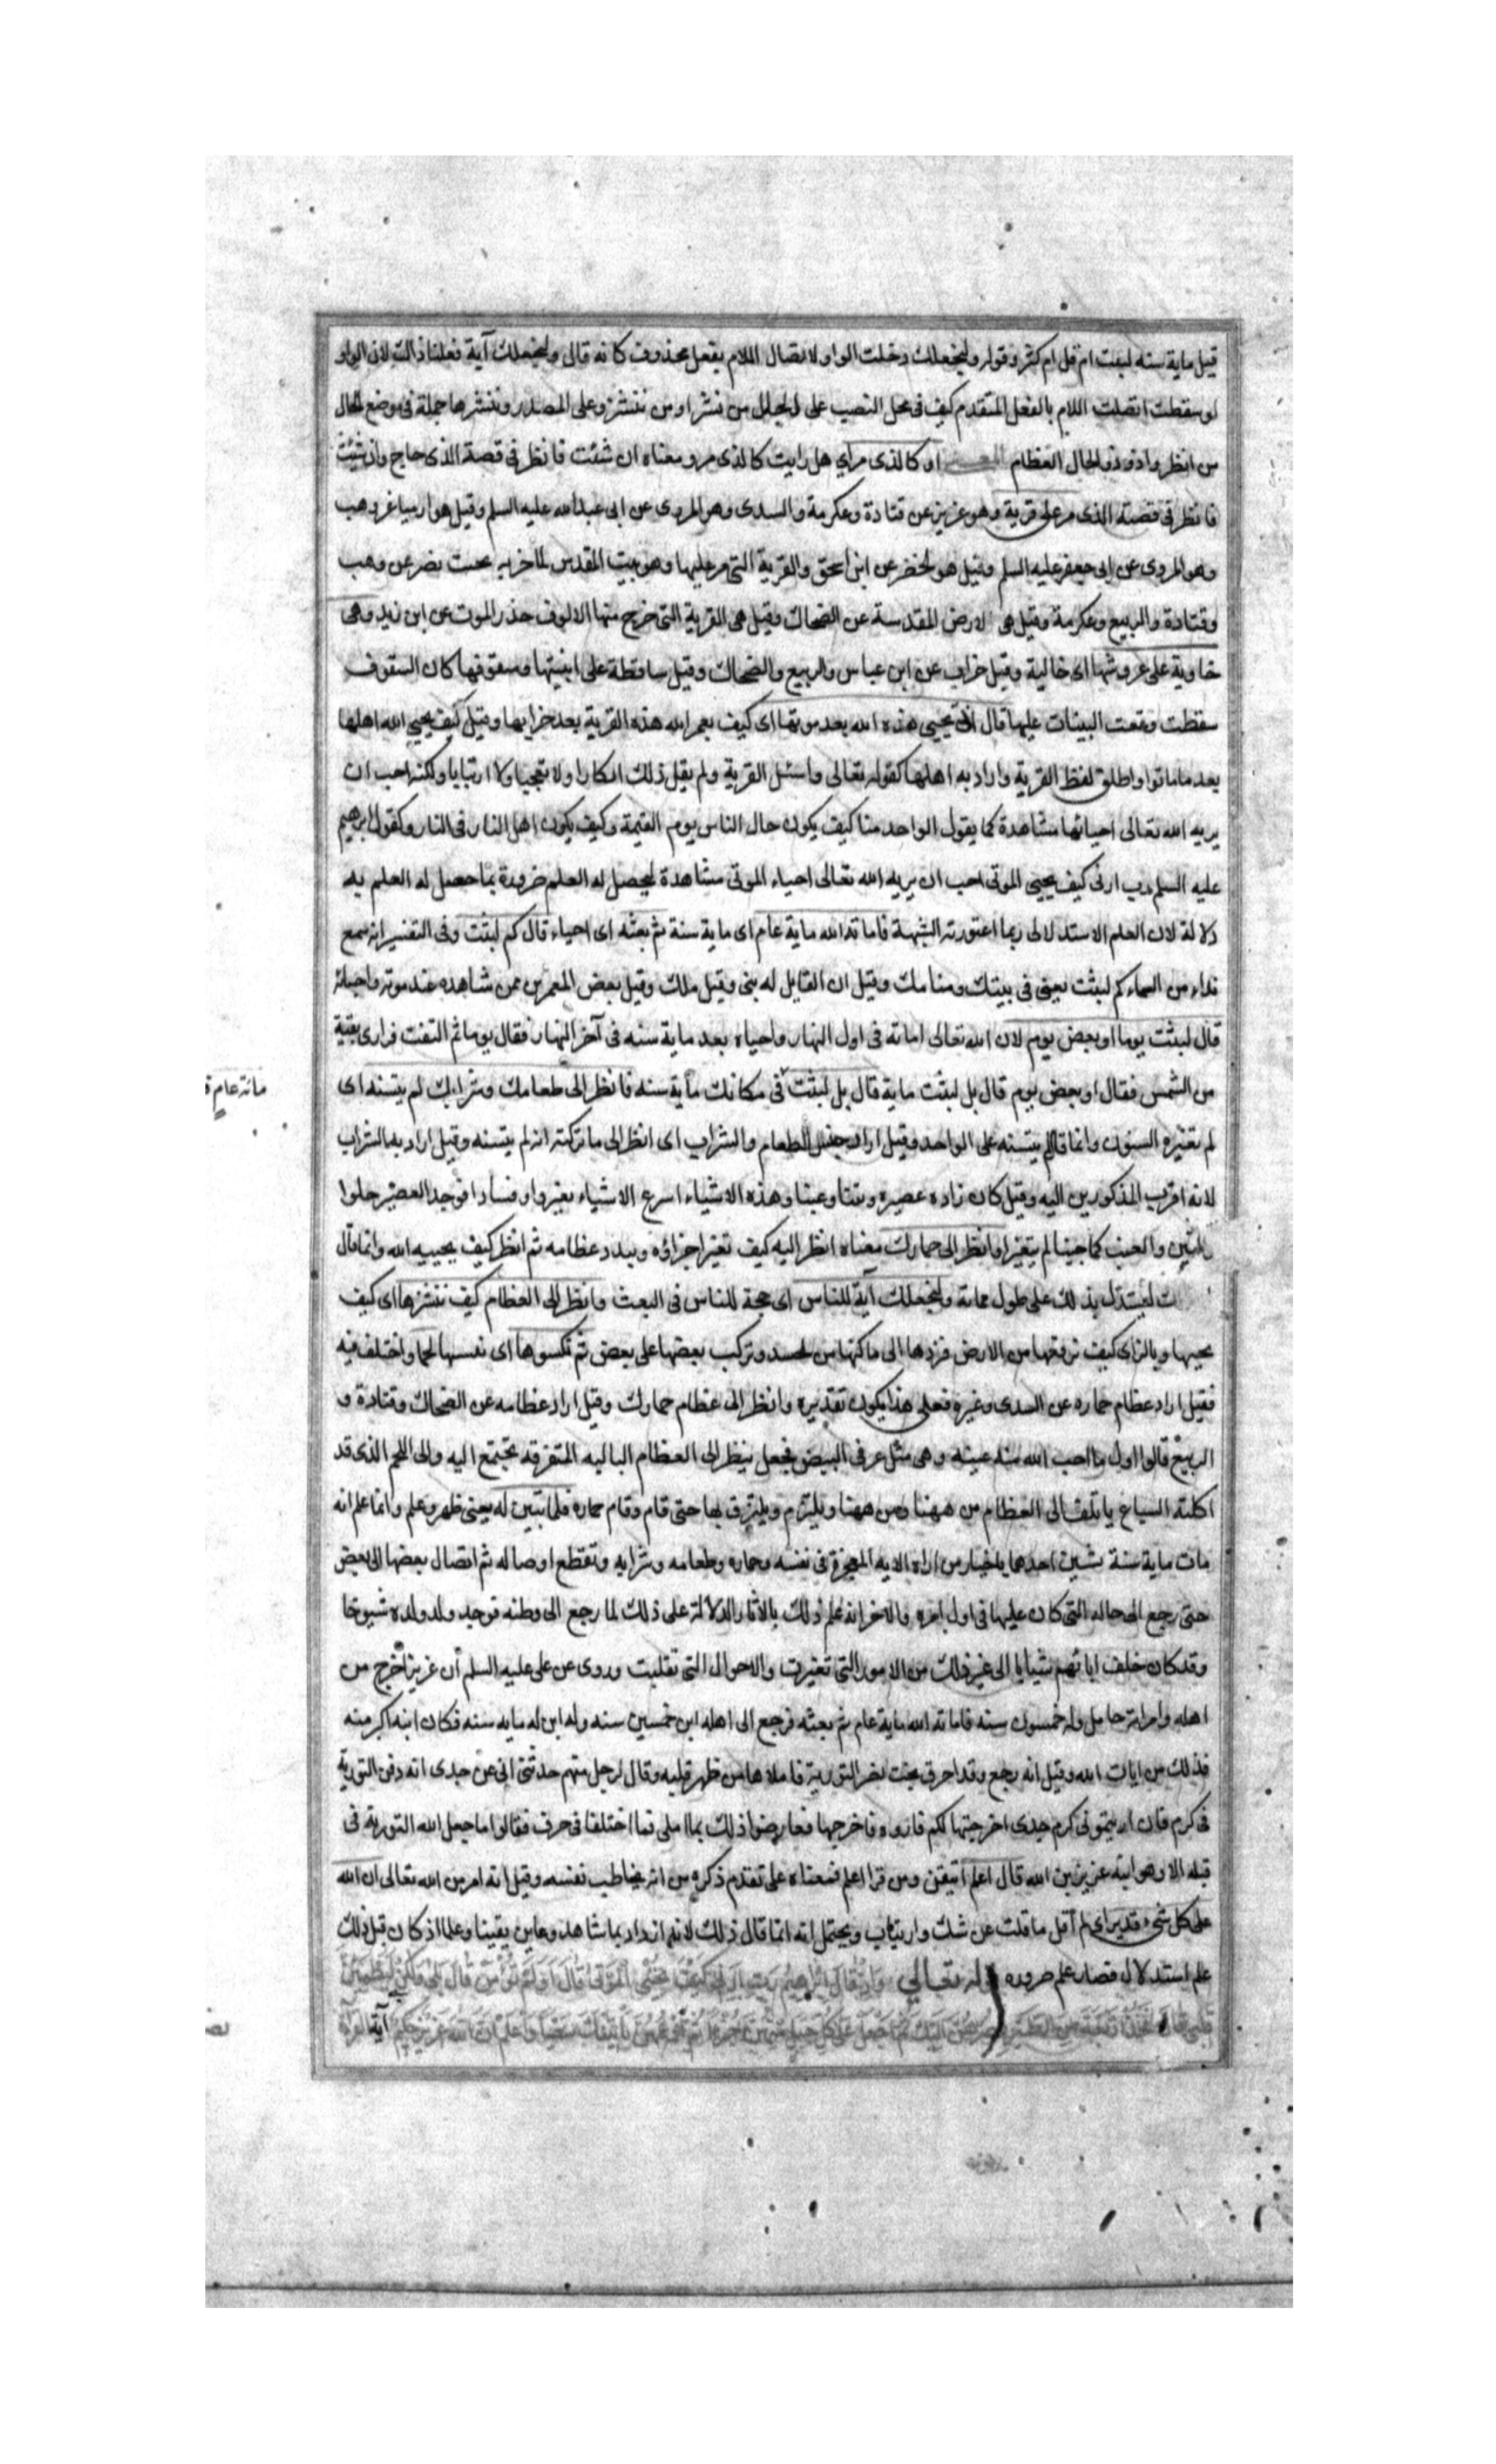 قيل ماية سنه لبثت ام قل ام كثر وقوله ولنجعلك دخلت الواو لاتصال اللام بفعل محذوف كانه قال ولنجعلك آية فعلنا ذالك لان الواو
لو سقطت اتصلت اللام بالفعل المتقدم كيف فى محل النصب على الحال من نشر او من ننشز وعلى المصدر وننشزها جملة فى موضع الحال
من انظر وذو الحال العظام المعنى او كالذى مر اي هل رايت كالذى مر ومعناه ان شئت فانظر فى قصة الذى حاج وان شئت
فانظر فى قصة الذى مر على قرية وهو عزير عن قتادة وعكرمة والسدى وهو المروى عن ابى عبدالله عليه السلم وقيل هو ارميا عن وهب
وهو المروى عن ابى جعفر عليه السلم وقيل هو الخضر عن ابن اسحق والقرية التى مر عليها وهو بيت المقدس لما خربه بخت نصر عن وهب
وقتادة والربيع وعكرمة وقيل هى الارض المقدسة عن الضحاك وقيل هى القرية التى خرج منها الالوف حذر الموت عن ابن زيد وهى
خاوية على عروشها اى خالية وقيل خراب عن ابن عباس والربيع والضحاك وقيل ساقطة على ابنيتها وسقوفها كان السقوف
سقطت وقعت البنيات عليها قال انى يحيى هذه الله بعد موتها اى كيف يعمر الله هذه القرية بعد خرابها وقيل كيف يحيى الله اهلها
بعد ما ماتوا واطلق لفظ القرية واراد به اهلها كقوله تعالى واسئل القرية ولم يقل ذلك انكارا ولا تعجبا ولا ارتيابا ولكنه احب ان
يريه الله تعالى احيائها مشاهدة كما يقول الواحد منا كيف يكون حال الناس يوم القيمة وكيف يكون اهل النار فى النار وكقول ابرهيم
عليه السلم رب ارنى كيف يحيى الموتى احب ان يريه الله تعالى احياء الموتى مشاهدة ليحصل له العلم ضرورة كما حصل له العلم به
دلالة لان العلم الاستدلالى ربما اعتورته الشبهة فاماته الله ماية عام اى ماية سنة ثم بعثه اى احياه قال كم لبثت وفى التفسير انه سمع
نداء من السماء كم لبثت يعنى فى بيتك ومنامك وقيل ان القايل له نبى وقيل ملك وقيل بعض المعمرين ممن شاهده عند موته واحيائه
قال لبثت يوما او بعض يوم لان الله تعالى اماته فى اول النهار واحياه بعد ماية سنه فى آخر النهار فقال يوما ثم التفت فراى بقية
من الشمس فقال او بعض يوم قال بل لبثت ماية قال بل لبثت فى مكانك مأية سنه فانظر الى طعامك وشرابك لم يتسنه اى
مائة عام
لم تغيره السنون وانما قال لم يتسنه على الواحد وقيل اراد جنس الطعام والشراب اى انظر الى ما تركته انه لم يتسنه وقيل اراد به الشراب
لانه اقرب المذكورين اليه وقيل كان زاده عصيرا وتينا وعنبا وهذه الاشياء اسرع الاشياء تغيرا وفسادا فوجد العصير حلوا
والتين والعنب كما جنيا لم يتغيرا وانظر الى حمارك معناه انظر اليه كيف تغير اجزاؤه وتبدد عظامه ثم انظر كيف يحييه الله وانما قال
ليستدل بذلك على طول مماته ولنجعلك آية للناس اى حجة للناس فى البعث وانظر الى العظام كيف ننشزها اى كيف
نحييها وبالزاى كيف نرفعها من الارض فنردها الى اماكنها من الجسد ونركب بعضها على بعض ثم نكسوها اى نفسها لحما واختلف فيه
فقيل اراد عظام حماره عن السدى وغيره فعلى هذا يكون تقديره وانظر الى عظام حمارك وقيل اراد عظامه عن الضحاك وقتادة و
الربيع قالوا اول ما احيى الله منه عينه وهى مثل غرقى البيض فجعل ينظر الى العظام الباليه المتفرقه تجتمع اليه والى اللحم الذى قد
اكلته السباع ياتلف الى العظام من ههنا ومن ههنا ويلتزم ويلتزق بها حتى قام وقام حماره فلما تبين له يعنى ظهر وعلم وانما علم انه
مات ماية سنة بشيئين احدهما باخبار من اراه الايه المعجزة فى نفسه وحماره وطعامه وشرابه وتقطع اوصاله ثم اتصال بعضها الى بعض
حتى رجع الى حاله التى كان عليها فى اول امره والاخر انه علم ذلك بالاثار الدلالة على ذلك لما رجع الى وطنه فوجد ولد ولده شيوخا
وقد كان خلف اباءهم شبابا الى غير ذلك من الامور التى تغيرت والاحوال التى تقلبت وروى عن على عليه السلم أن عزيرا خرج من
اهله وامراته حامل وله خمسون سنه فاماته الله ماية عام ثم بعثه فرجع الى اهله ابن خمسين سنه وله ابن له مايه سنه فكان ابنه اكبر منه
فذلك من ايات الله وقيل انه رجع وقد احرق بخت نصر التورية فاملاها من ظهر قلبه وقال رجل منهم حدثنى ابى عن جدى انه دفن التورية
فى كرم فان اريتمونى كرم جدى اخرجتها لكم فاروه فاخرجها فعارضوا ذلك بما املى فما اختلفا فى حرف فقالوا ما جعل الله التورية فى
قلبه الا وهو ابنه عزير بن الله قال اعلم اتيقن ومن قرا اعلم فمعناه على تقدم ذكره من انه يخاطب نفسه وقيل انه امر من الله تعالى ان الله
على كل شىء قدير اى لم أقل ما قلت عن شك وارتياب ويحتمل انه انما قال ذلك لانه ازداد بما شاهد وعاين يقينا وعلما اذ كان قبل ذلك
علم استدلال فصار علم ضرورة قوله تعالى وَاِذْ قَالَ اِبْرٰهيمُ رَبِّ اَرِنى كَيْفَ تُحْيِى الْمَوْتٰى قَالَ اَوَلَمْ تُؤْمِنْ قَالَ بَلٰى وَلٰكِنْ لِيَطْمَئِنَّ
قَلْبى قَالَ فَخُذْ اَرْبَعَةً مِنَ الطَّيْرِ فَصُرْهُنَّ اِلَيْكَ ثُمَّ اجْعَلْ عَلٰى كُلِّ جَبَلٍ مِنْهُنَّ جُزْءًا ثُمَّ ادْعُهُنَّ يَأْتينَكَ سَعْيًا وَاعْلَمْ اَنَّ اللهَ عَزيزٌ حَكيمٌ آية القراءة